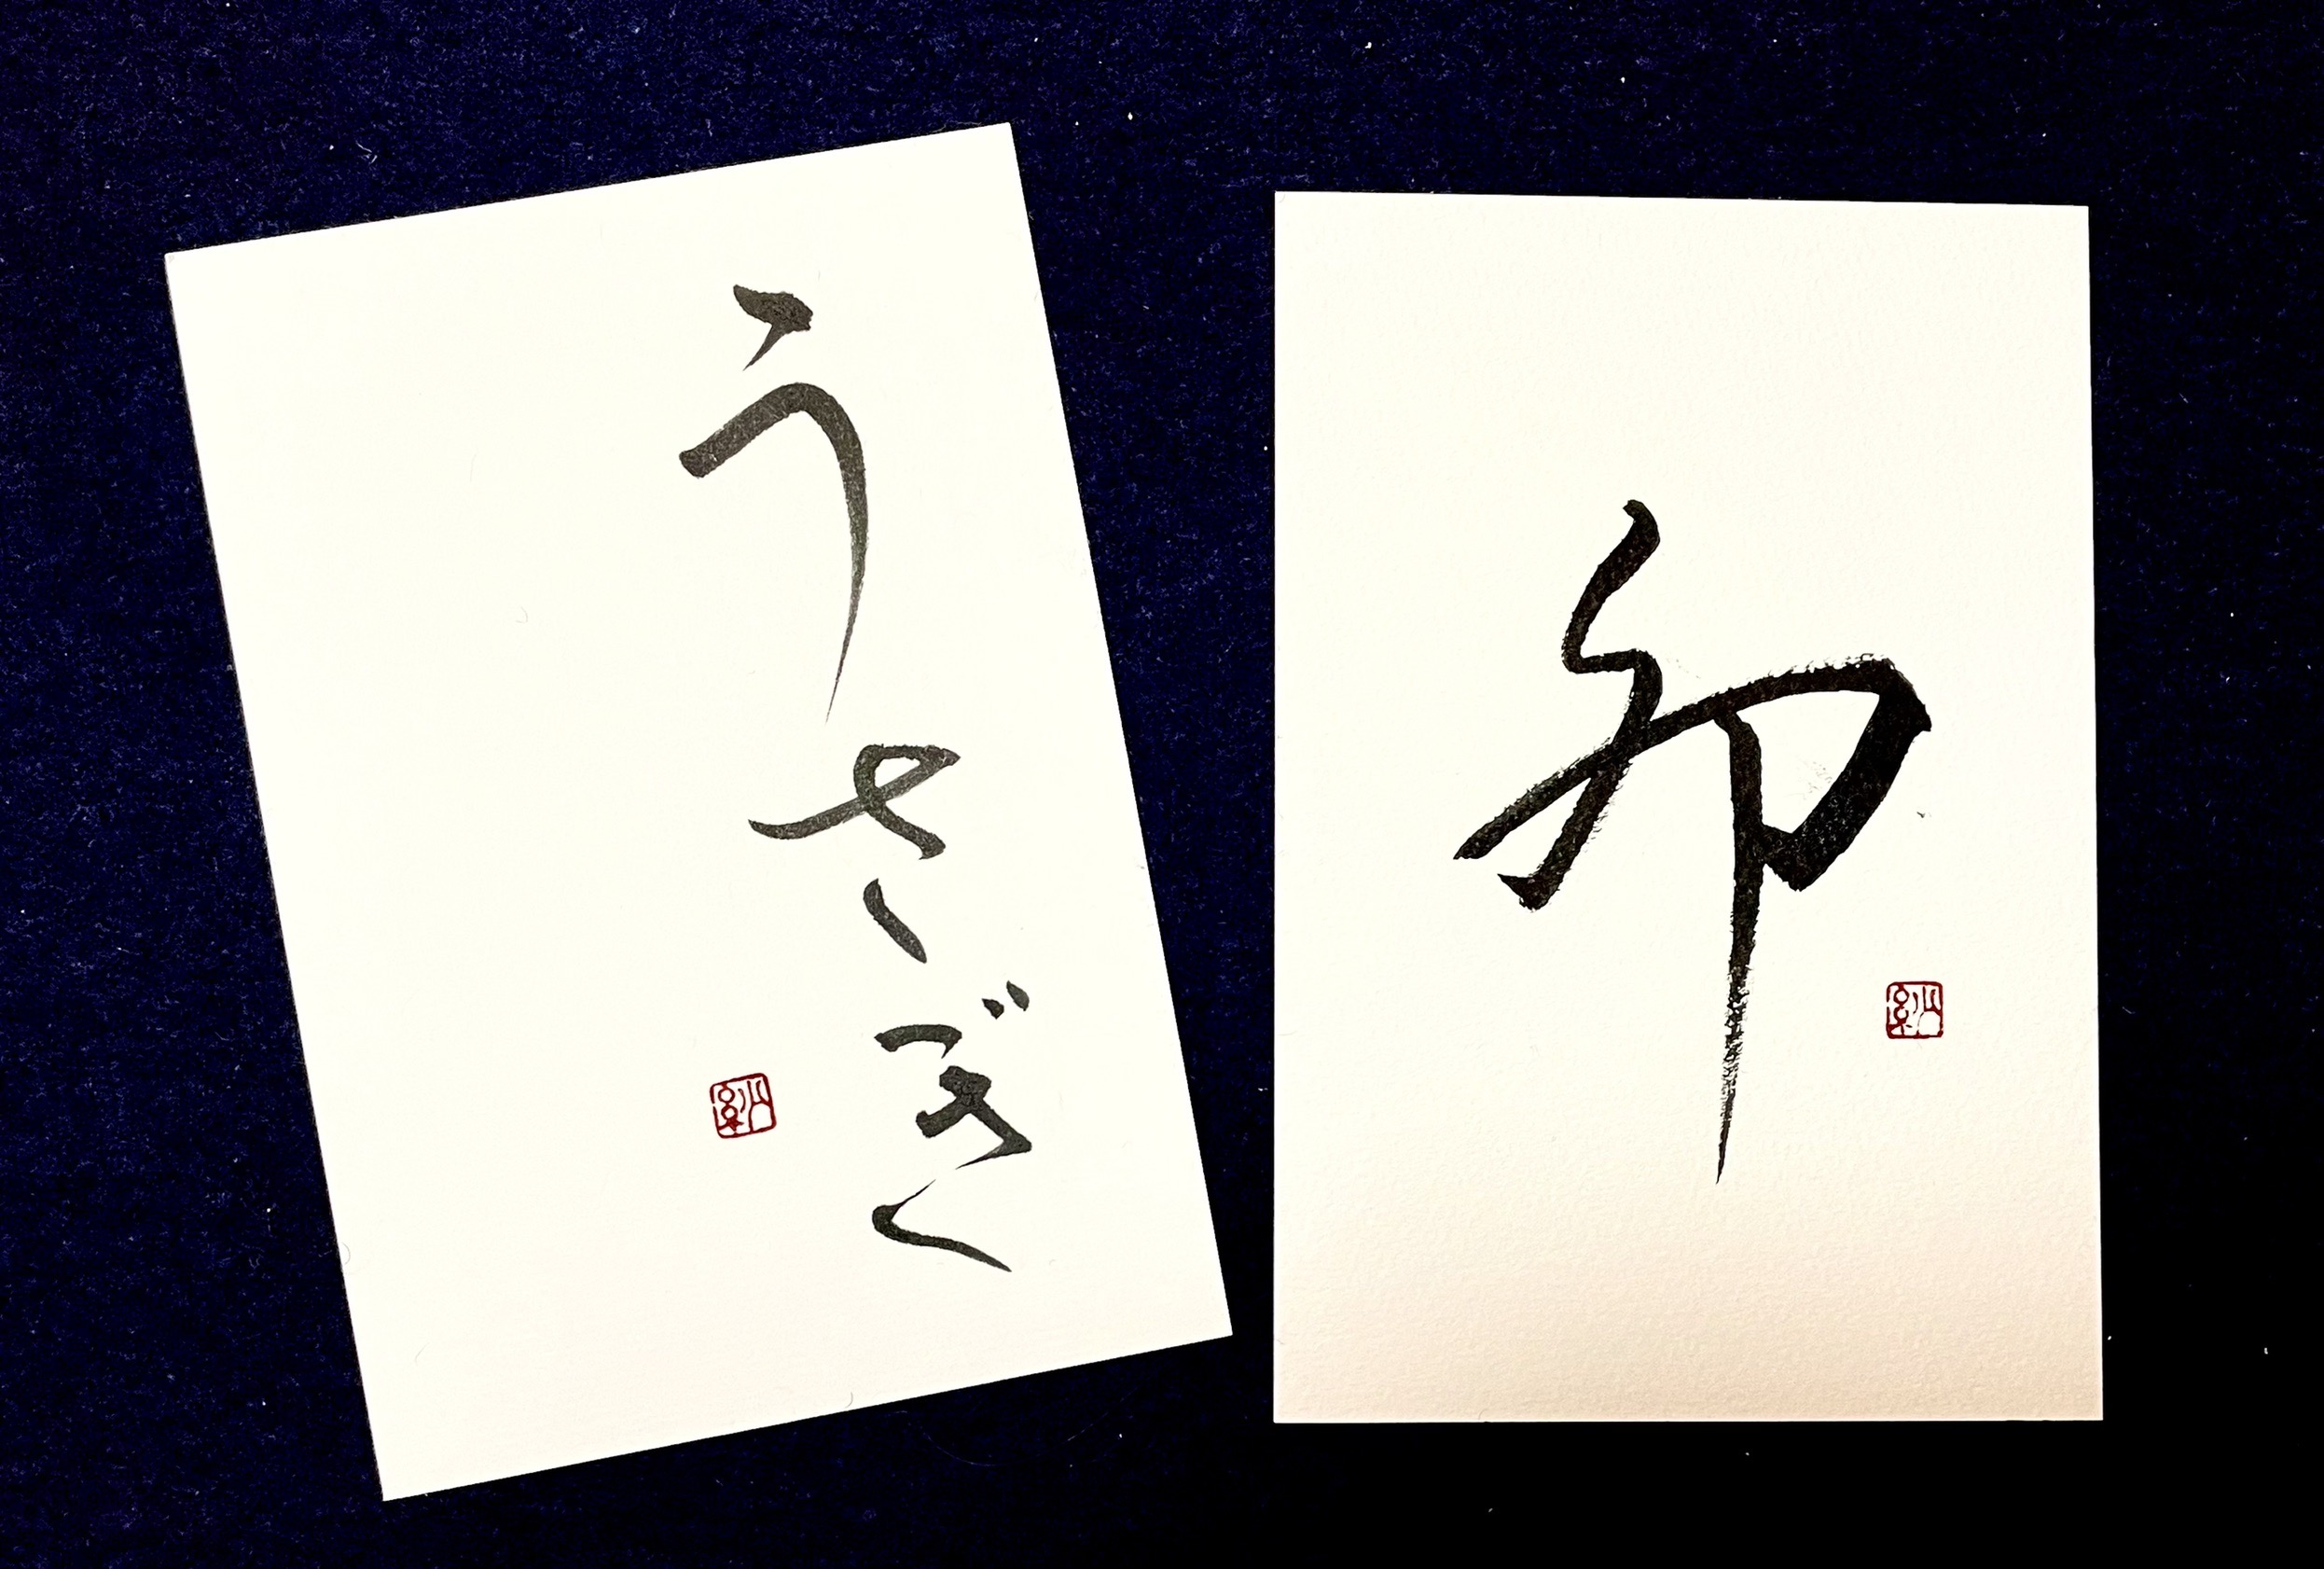 卯
うさぎ